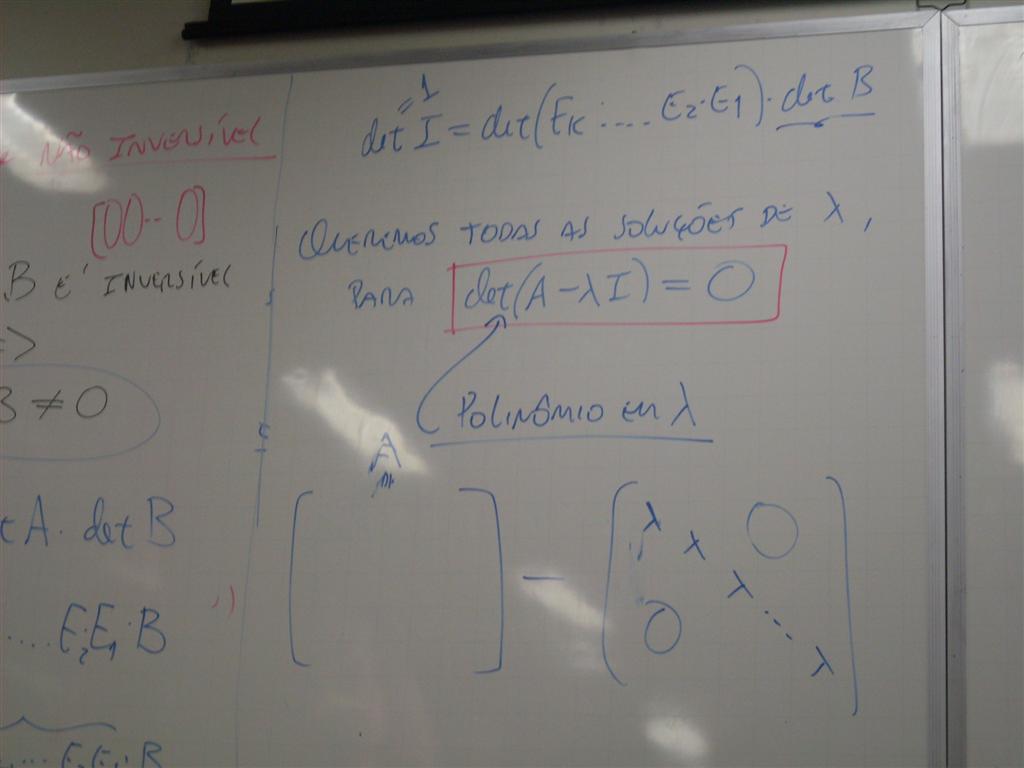 NÃO INVERSÍVEL
[00-- 0]
B É INVERSÍVEL
=>
B ≠ 0
t A . det B
.... E₂E₁.B
.... E₂E₁.B
= 1
det I = det(Eₖ ..... E₂.E₁) . det B
QUEREMOS TODAS AS SOLUÇÕES DE λ,
PARA det(A - λI) = 0
POLINÔMIO EM λ
A
[ ] - ( λ λ 0
λ
0 λ )